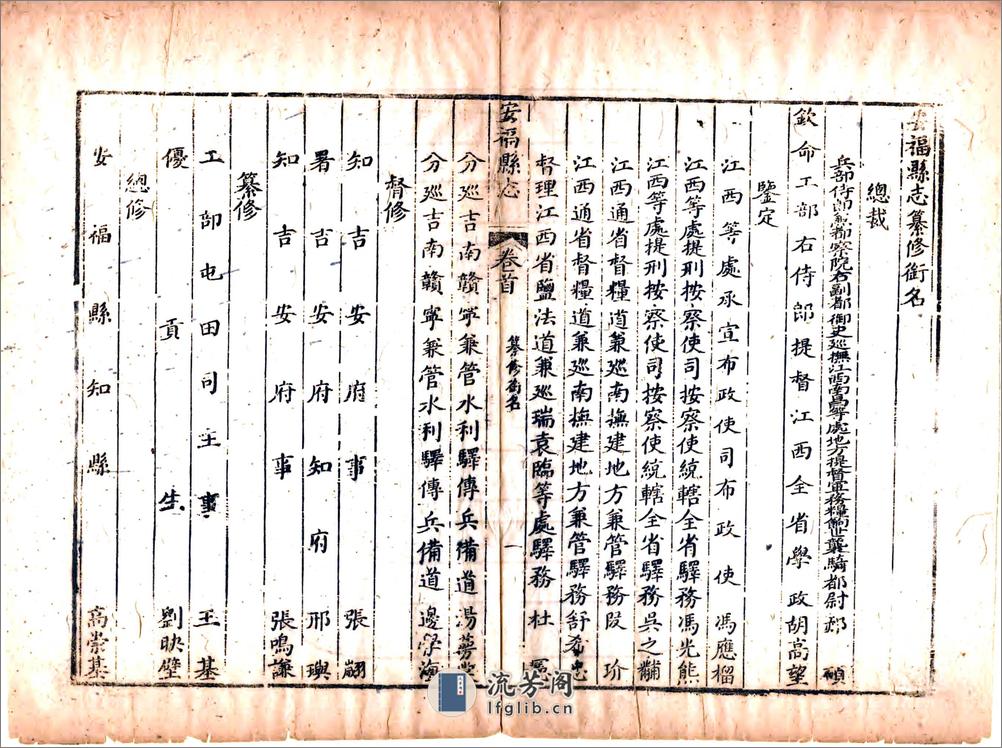 安福縣志纂修銜名
總裁
兵部侍郎兼都察院右副都御史巡撫江西南昌等處地方提督軍務糧餉世襲騎都尉郝 碩
欽命工部右侍郎提督江西全省學政胡高望
鑒定
江西等處承宣布政使司布政使 馮應榴
江西等處提刑按察使司按察使統轄全省驛務馮光熊
江西等處提刑按察使司按察使統轄全省驛務吳之黼
江西通省督糧道兼巡南撫建地方兼管驛務段 玠
江西通省督糧道兼巡南撫建地方兼管驛務舒希忠
督理江西省鹽法道兼巡瑞袁臨等處驛務 杜
安福縣志 卷首 纂修銜名 一
分巡吉南贛寧兼管水利驛傳兵備道 湯萼棠
分巡吉南贛寧兼管水利驛傳兵備道 邊學海
督修
知吉安府事 張 翽
署吉安府知府 邢 璵
知吉安府事 張鳴謙
纂修
工部屯田司主事 王 基
優貢生 劉映璧
總修
安福縣知縣 高崇基
流芳阁
lfglib.cn